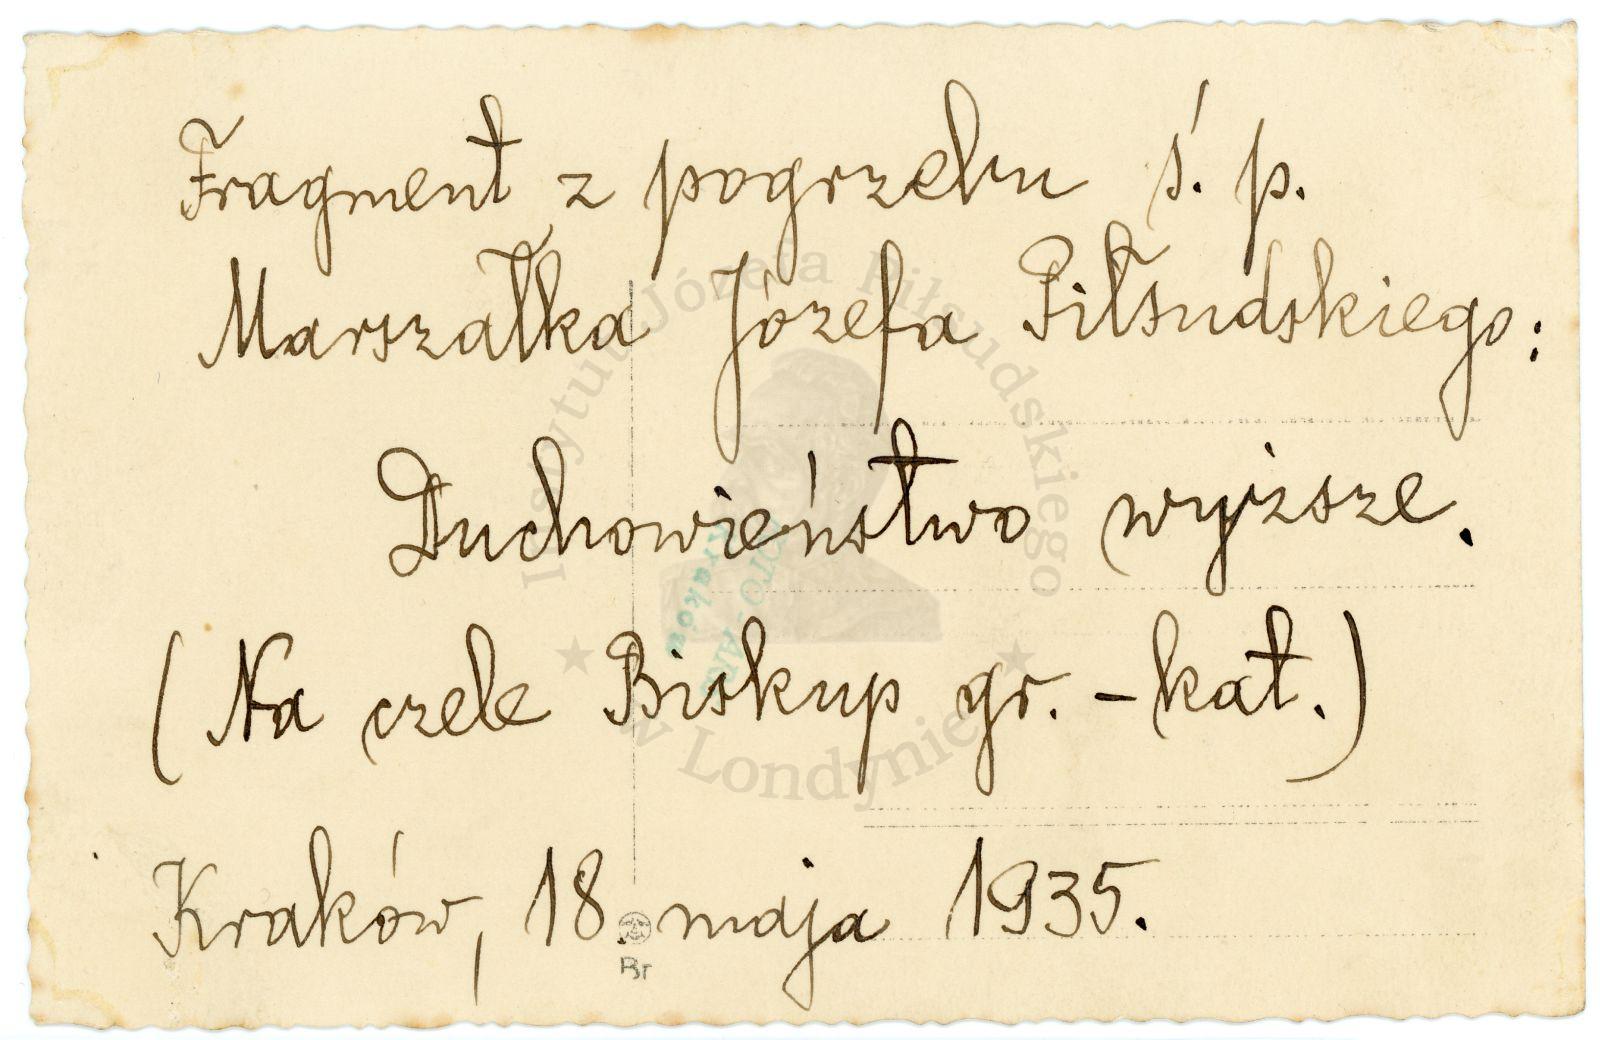 Fragment z pogrzebu ś. p.
Marszałka Józefa Piłsudskiego:
Duchowieństwo wyższe.
(Na czele Biskup gr. - kat.)
Kraków, 18. maja 1935.
Instytut Józefa Piłsudskiego
w Londynie
Kraków
Br